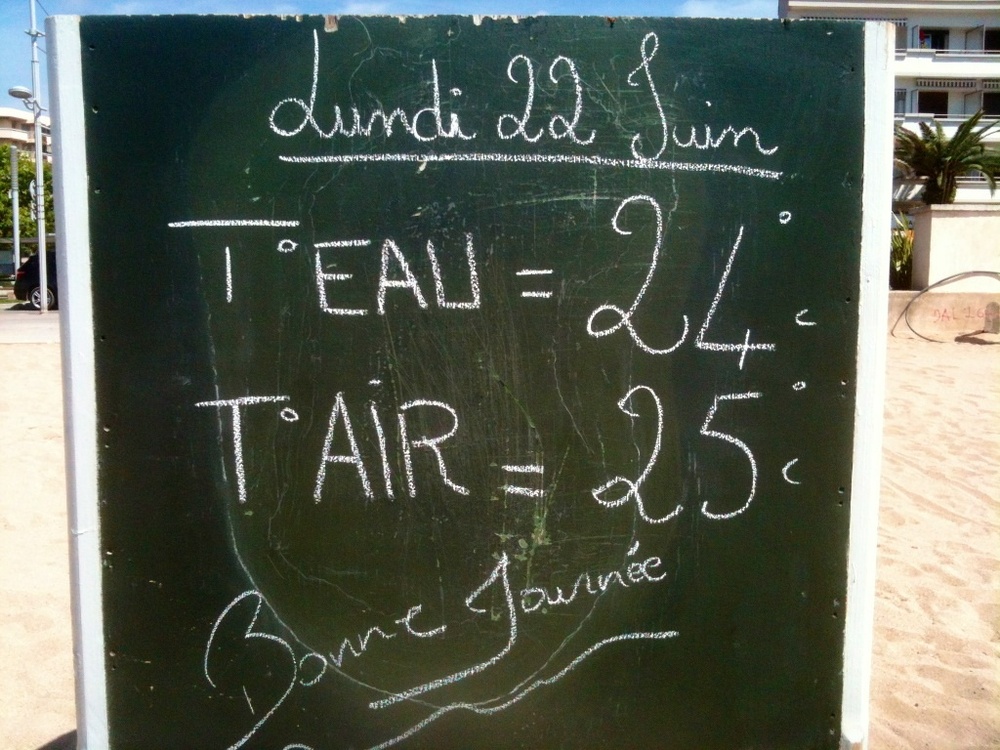 Lundi 22 Juin
T° EAU = 24°c
T° AiR = 25°c
Bonne Journée